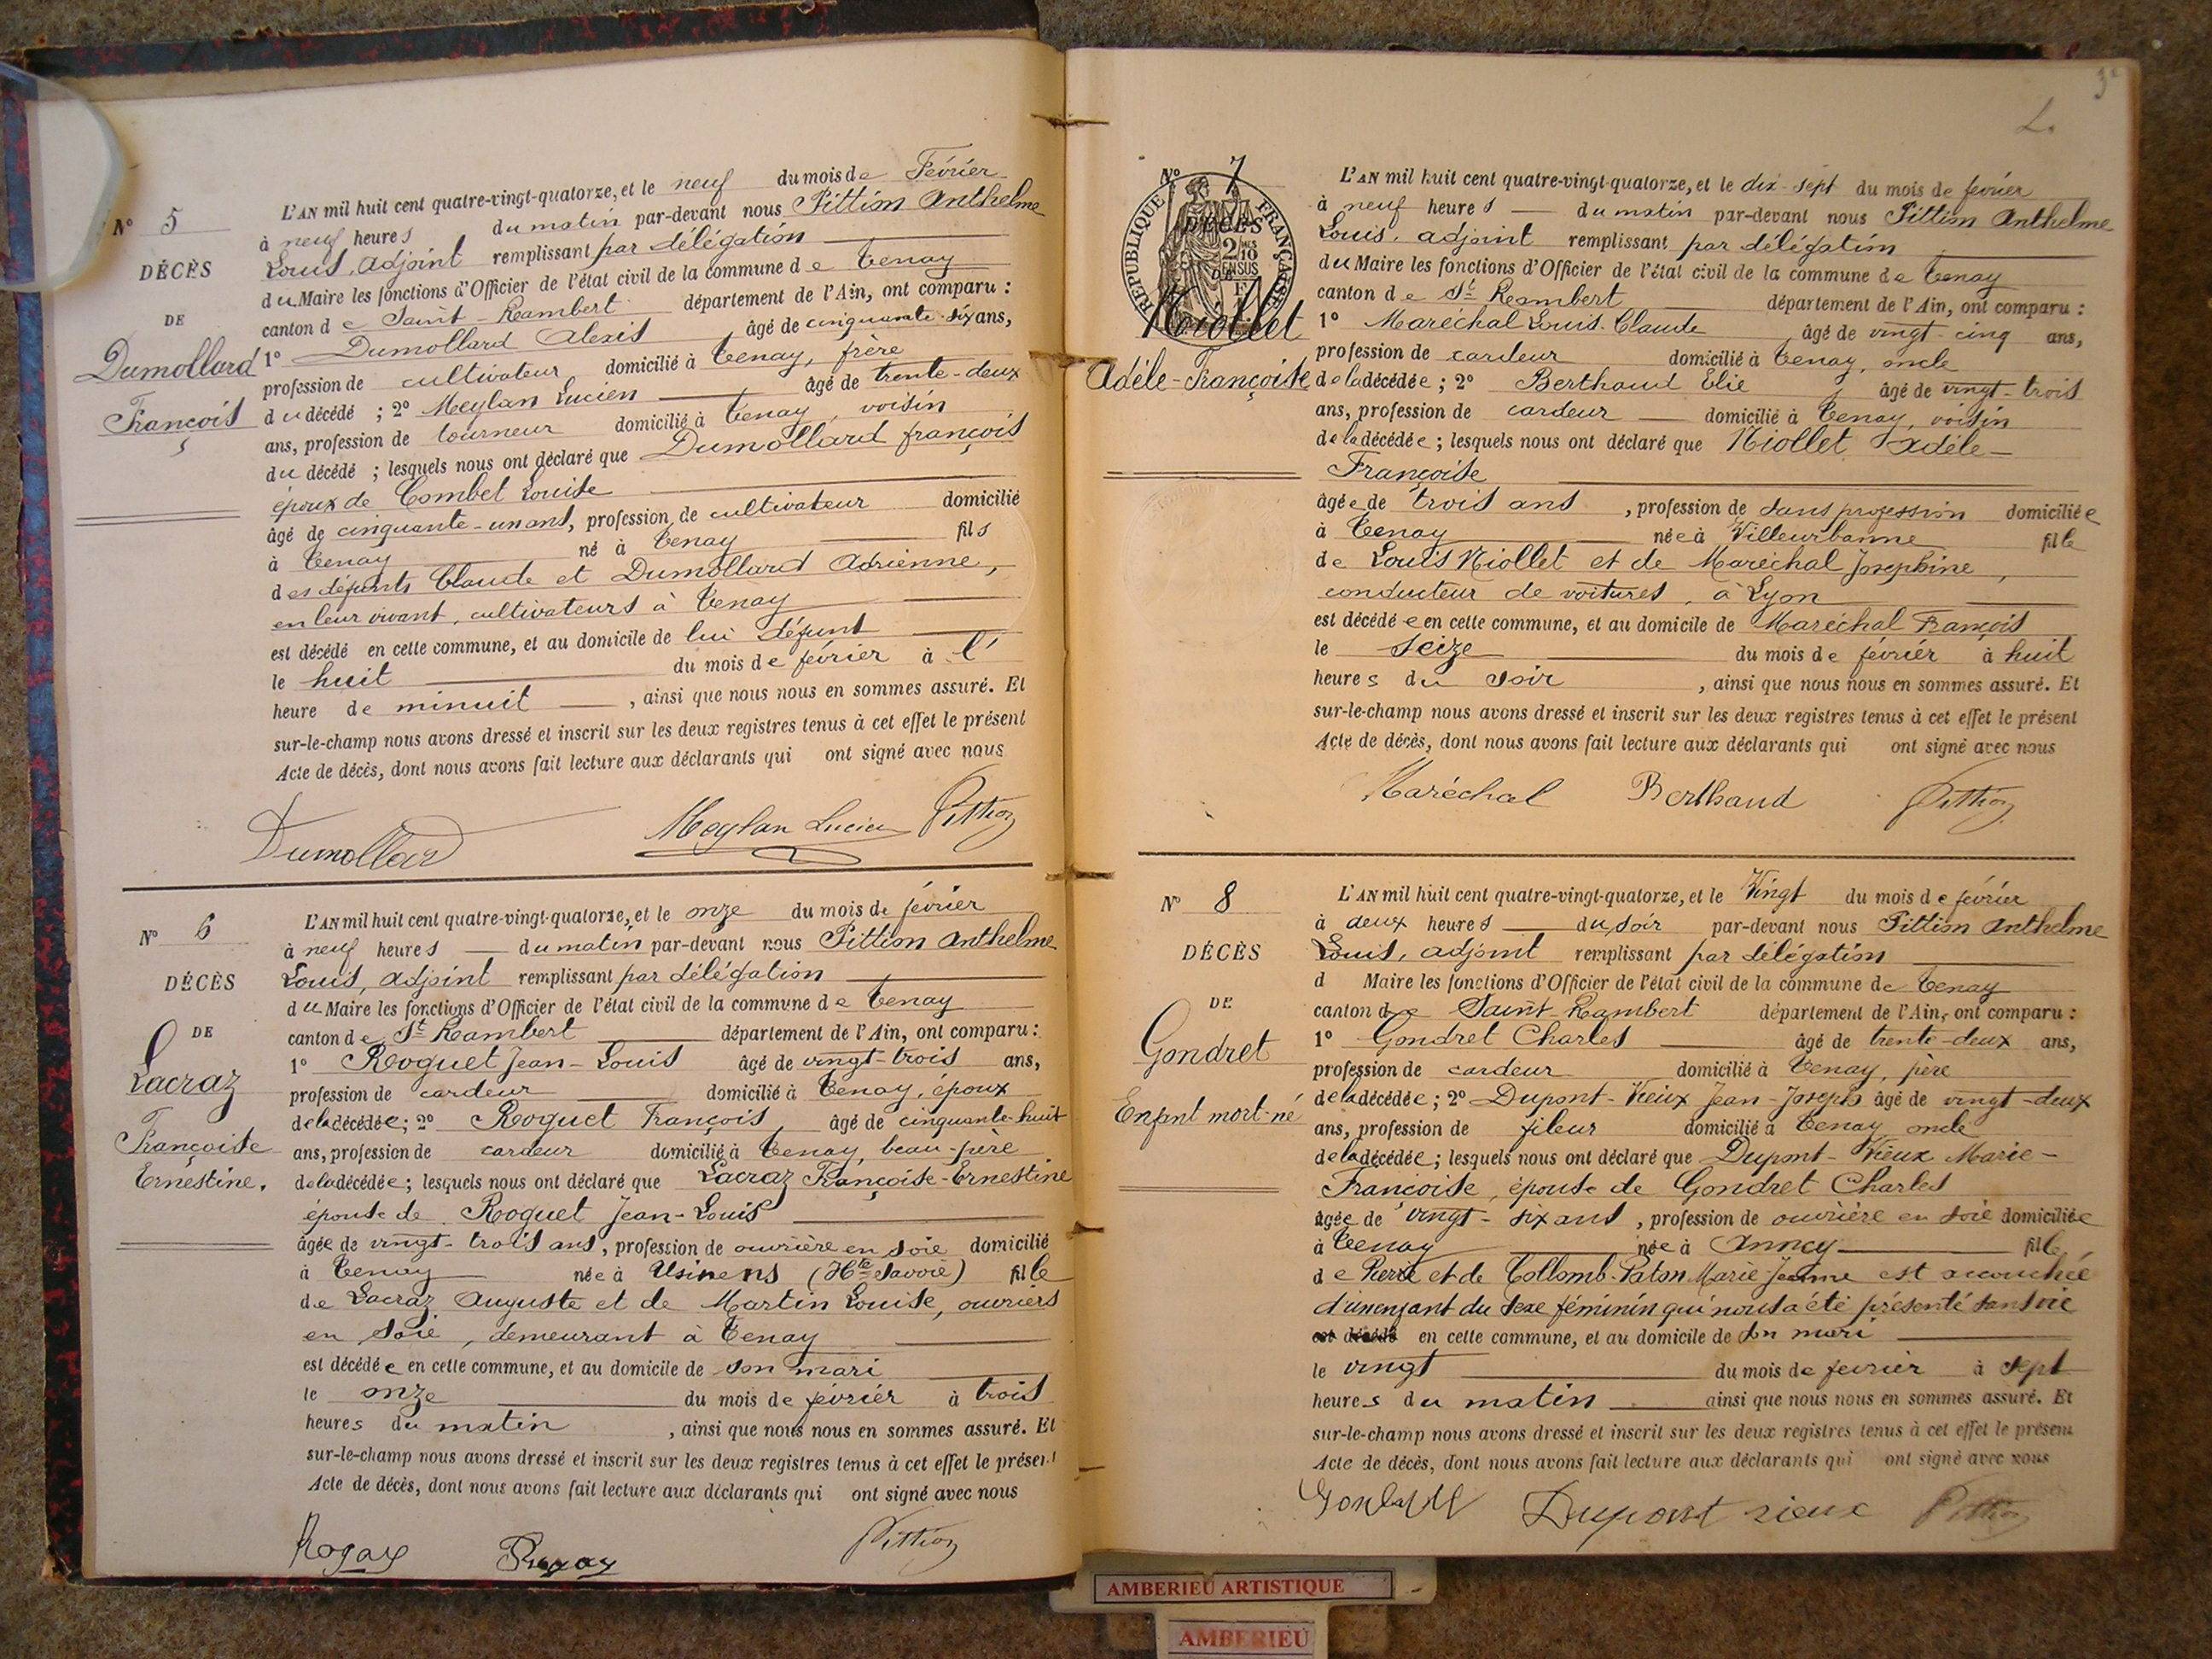 N° 5
DÉCÈS
DE
Dumollard
François
L'AN mil huit cent quatre-vingt-quatorze, et le neuf du mois de Février
à neuf heures du matin par-devant nous Pittion Anthelme
Louis, adjoint remplissant par délégation
du Maire les fonctions d'Officier de l'état civil de la commune de Tenay
canton de Saint-Rambert département de l'Ain, ont comparu :
1° Dumollard Alexis âgé de cinquante-six ans,
profession de cultivateur domicilié à Tenay, frère
du décédé ; 2° Meylan Lucien âgé de trente-deux
ans, profession de tourneur domicilié à Tenay, voisin
du décédé ; lesquels nous ont déclaré que Dumollard françois
époux de Combet Louise
âgé de cinquante-un ans, profession de cultivateur domicilié
à Tenay né à Tenay fils
des défunts Claude et Dumollard Adrienne,
en leur vivant, cultivateurs à Tenay
est décédé en cette commune, et au domicile de lui défunt
le huit du mois de février à l'
heure de minuit , ainsi que nous nous en sommes assuré. Et
sur-le-champ nous avons dressé et inscrit sur les deux registres tenus à cet effet le présent
Acte de décès, dont nous avons fait lecture aux déclarants qui ont signé avec nous
Dumollard Meylan Lucien Pittion
N° 6
DÉCÈS
DE
Lacraz
Françoise
Ernestine.
L'AN mil huit cent quatre-vingt-quatorze, et le onze du mois de février
à neuf heures du matin par-devant nous Pittion Anthelme
Louis, adjoint remplissant par délégation
du Maire les fonctions d'Officier de l'état civil de la commune de Tenay
canton de St Rambert département de l'Ain, ont comparu :
1° Roguet Jean-Louis âgé de vingt-trois ans,
profession de cardeur domicilié à Tenay, époux
de la décédée ; 2° Roguet François, âgé de cinquante-huit
ans, profession de cardeur domicilié à Tenay, beau-père
de la décédée ; lesquels nous ont déclaré que Lacraz Françoise-Ernestine
épouse de Roguet Jean-Louis
âgée de vingt-trois ans, profession de ouvrière en soie domicilié
à Tenay née à Usinens (Hte Savoie) fille
de Lacraz Auguste et de Martin Louise, ouvriers
en soie, demeurant à Tenay
est décédée en cette commune, et au domicile de son mari
le onze du mois de février à trois
heures du matin , ainsi que nous nous en sommes assuré. Et
sur-le-champ nous avons dressé et inscrit sur les deux registres tenus à cet effet le présent
Acte de décès, dont nous avons fait lecture aux déclarants qui ont signé avec nous
Pittion
N° 7
DÉCÈS
RÉPUBLIQUE FRANÇAISE
Niollet
Adéle-Françoise
L'AN mil huit cent quatre-vingt-quatorze, et le dix-sept du mois de février
à neuf heures du matin par-devant nous Pittion Anthelme
Louis, adjoint remplissant par délégation
du Maire les fonctions d'Officier de l'état civil de la commune de Tenay
canton de St Rambert département de l'Ain, ont comparu :
1° Maréchal Louis-Claude, âgé de vingt-cinq ans,
profession de cardeur domicilié à Tenay, oncle
de la décédée ; 2° Berthaud Elie, âgé de vingt-trois
ans, profession de cardeur domicilié à Tenay, voisin
de la décédée ; lesquels nous ont déclaré que Niollet Adéle-
Françoise
âgée de trois ans , profession de sans profession domiciliée
à Tenay née à Villeurbanne fille
de Louis Niollet et de Maréchal Josephine,
conducteur de voitures, à Lyon
est décédée en cette commune, et au domicile de Maréchal François
le seize du mois de février à huit
heures du soir , ainsi que nous nous en sommes assuré. Et
sur-le-champ nous avons dressé et inscrit sur les deux registres tenus à cet effet le présent
Acte de décès, dont nous avons fait lecture aux déclarants qui ont signé avec nous
Maréchal Berthaud Pittion
N° 8
DÉCÈS
DE
Gondret
Enfant mort-né
L'AN mil huit cent quatre-vingt-quatorze, et le Vingt du mois de février
à deux heures du soir par-devant nous Pittion Anthelme
Louis, adjoint remplissant par délégation
d Maire les fonctions d'Officier de l'état civil de la commune de Tenay
canton de Saint-Rambert département de l'Ain, ont comparu :
1° Gondret Charles âgé de trente-deux ans,
profession de cardeur domicilié à Tenay, père
de la décédée ; 2° Dupont-Vieux Jean-Joseph âgé de vingt-deux
ans, profession de fileur domicilié à Tenay oncle
de la décédée ; lesquels nous ont déclaré que Dupont-Vieux Marie-
Françoise, épouse de Gondret Charles
âgée de vingt-six ans, profession de ouvrière en soie domiciliée
à Tenay née à Anncy fille
de Pierre et de Collomb-Paton Marie-Jeanne est accouchée
d'un enfant du sexe féminin qui nous a été présenté sans vie
est décédé en cette commune, et au domicile de son mari
le vingt du mois de fevrier à sept
heures du matin ainsi que nous nous en sommes assuré. Et
sur-le-champ nous avons dressé et inscrit sur les deux registres tenus à cet effet le présent
Acte de décès, dont nous avons fait lecture aux déclarants qui ont signé avec nous
Dupont vieux Pittion
AMBERIEU ARTISTIQUE
AMBERIEU